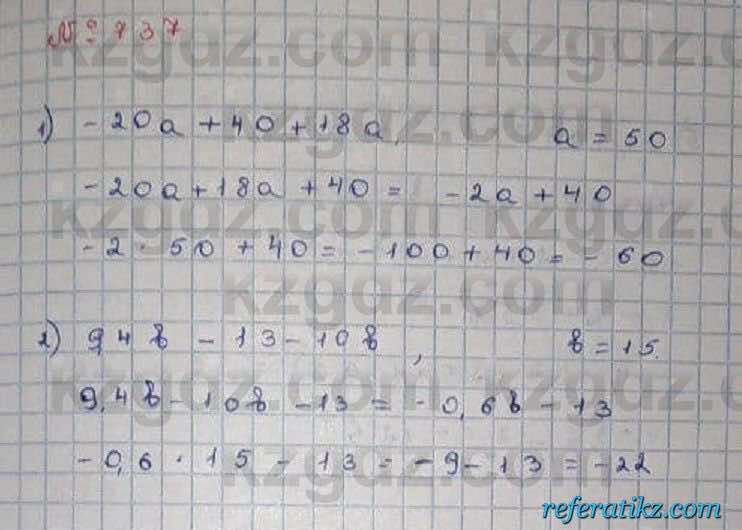 № 737
1) -20a + 40 + 18a, a = 50
-20a + 18a + 40 = -2a + 40
-2 · 50 + 40 = -100 + 40 = -60
2) 9,4b - 13 - 10b, b = 15.
9,4b - 10b - 13 = -0,6b - 13
-0,6 · 15 - 13 = -9 - 13 = -22
kzgdz.com
referatikz.com